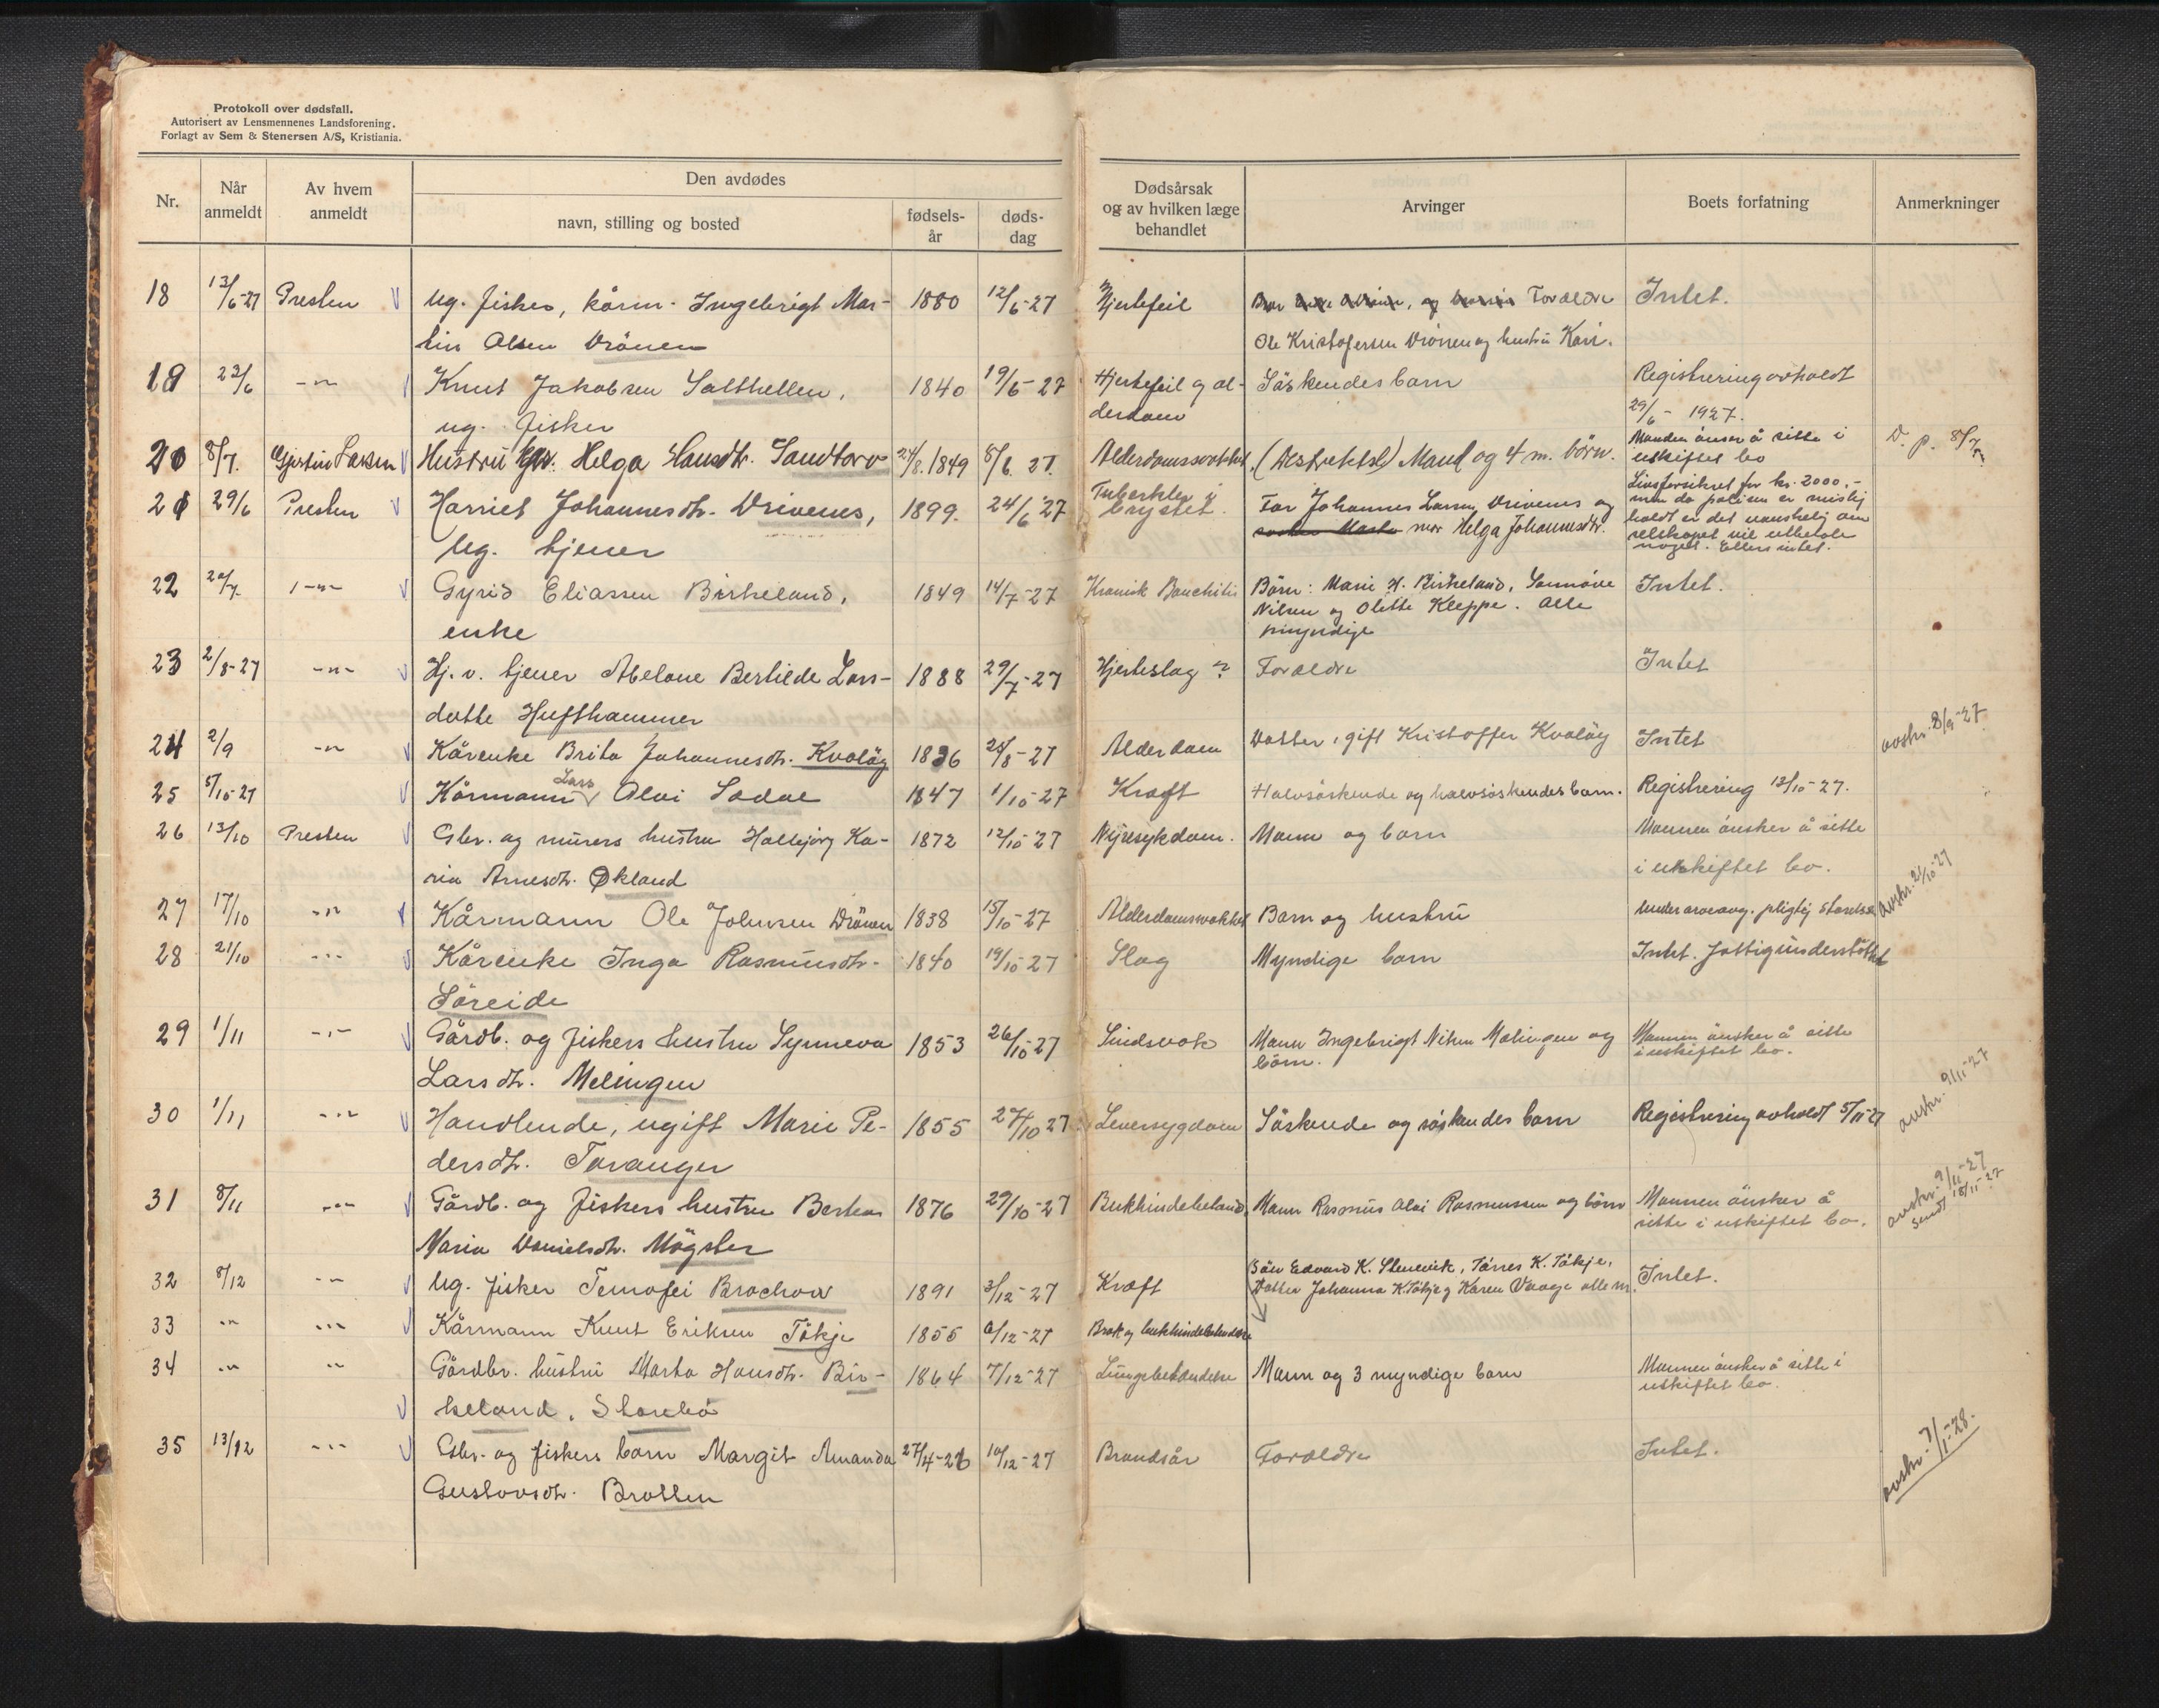 Protokoll over dødsfall.
Autorisert av Lensmennenes Landsforening.
Forlagt av Sem & Stenersen A/S, Kristiania.
Nr. Når anmeldt Av hvem anmeldt Den avdødes navn, stilling og bosted fødselsår dødsdag Dødsårsak og av hvilken læge behandlet Arvinger Boets forfatning Anmerkninger
18 13/6-27 Presten Ug. fisker, kårm. Ingebrigt Mar- 1880 12/6-27 Hjertefeil Foreldre Intet.
tin Olsen Drönen Ole Kristofersen Drönen og hustru Kari.
19 23/6 -"- Knut Jakobsen Salthellen, 1840 19/6-27 Hjertefeil og al- Söskendesbarn Registrering avholdt
ug. fisker derdom 29/6- 1927.
20 8/7. Larsen Hustru Helga Hansdtr. Sandtorv 24/8.1849 8/6.27. Alderdomssvakhet Mand og 4 m. börn. Manden önsker å sitte i
uskiftet bo D. p. 8/7
21 29/6 Presten Harriet Johannesdtr. Drivenes, 1899. 24/6'27 Tuberkler i Far Johannes Larsen Drivenes og Livsforsikret for kr. 2000,-
ug. tjener brystet. mor Helga Johannesdtr. men da polisen er mislig-
holdt er det vanskelig om
selskapet vil utbetale
noget. Ellers intet.
22 20/7 -"- Gyrid Eliassen Birkeland, 1849 14/7-27 Kronisk Bronchitis Börn: Marie H. Birkeland, Sannöve Intet.
enke Nilsen og Olette Kleppe. Alle
myndige
23 2/8-27 -"- Hj. v. tjener Abelone Bertilde Lars- 1888 29/7-27 Hjerteslag? Foreldre Intet
dotte Hufthammer
24 2/9 -"- Kårenke Brita Johannesdtr. Kvalöy 1836 28/8-27 Alderdom Datter, gift Kristoffer Kvalöy Intet avskr. 8/9-27
25 5/10-27 Kårmann Lars Olai Sædal 1847 1/10-27 Kræft Halvsöskende og halvsöskendesbarn. Registrering 13/10-27.
26 13/10 Presten Gbr. og murers hustru Halbjörg Ka- 1872 12/10-27 Nyresykdom. Mann og barn Mannen önsker å sitte
rin Arnesdtr. Økland i uskiftet bo.
27 17/10 -"- Kårmann Ole Johnsen Drönen 1838 15/10-27 Alderdomsvakhet Barn og hustru Under arveavg. pligtig störrelse avskr. 21/10-27
28 21/10 -"- Kårenke Inga Rasmusdtr. 1840 19/10-27 Slag Myndige barn Intet. Fattigunderstöttet
Söreide
29 1/11 -"- Gårdb. og fiskers hustru Synneva 1853 26/10-27 Sindsvak Mann Ingebrigt Nilsen Melingen og Mannen önsker å sitte
Larsdtr. Melingen börn. i uskiftet bo.
30 1/11 -"- Handlende, ugift Marie Pe- 1855 27/10 27 Leversygdom Söskende og söskendes barn Registrering avholdt 5/11-27 avskr. 9/11-27
dersdtr. Tøranger
31 8/11 -"- Gårdb. og fiskers hustru Berta 1876 29/10-27 Bukhindebetend. Mann Rasmus Olai Rasmussen og börn Mannen önsker å avskr. 9/11-27
Maria Danielsdtr. Mögster sitte i uskiftet bo. sendt 18/11-27
32 8/12 -"- Ug. fisker Temofei Brochow 1891 3/12-27 Kræft Intet.
Sön Edvard K. Stenevik, Törres K. Tökje,
Datter Johanna K. Tökje og Karen Vaage alle m.
33 -"- -"- Kårmann Knut Eriksen Tökje 1855 6/12-27 Brok og bukhindebetendelse
34 -"- -"- Gårdbr. hustru Marta Hansdtr. Bir- 1864 7/12-27 Lungebetendelse Mann og 3 myndige barn Mannen önsker å sitte i
keland, Storebö uskiftet bo.
35 13/12 -"- Gbr. og fiskers barn Margit Amanda 27/4-26 10/12-27 Brandsår Foreldre Intet. avskr. 7/1-28.
Gustavsdtr. Brotten